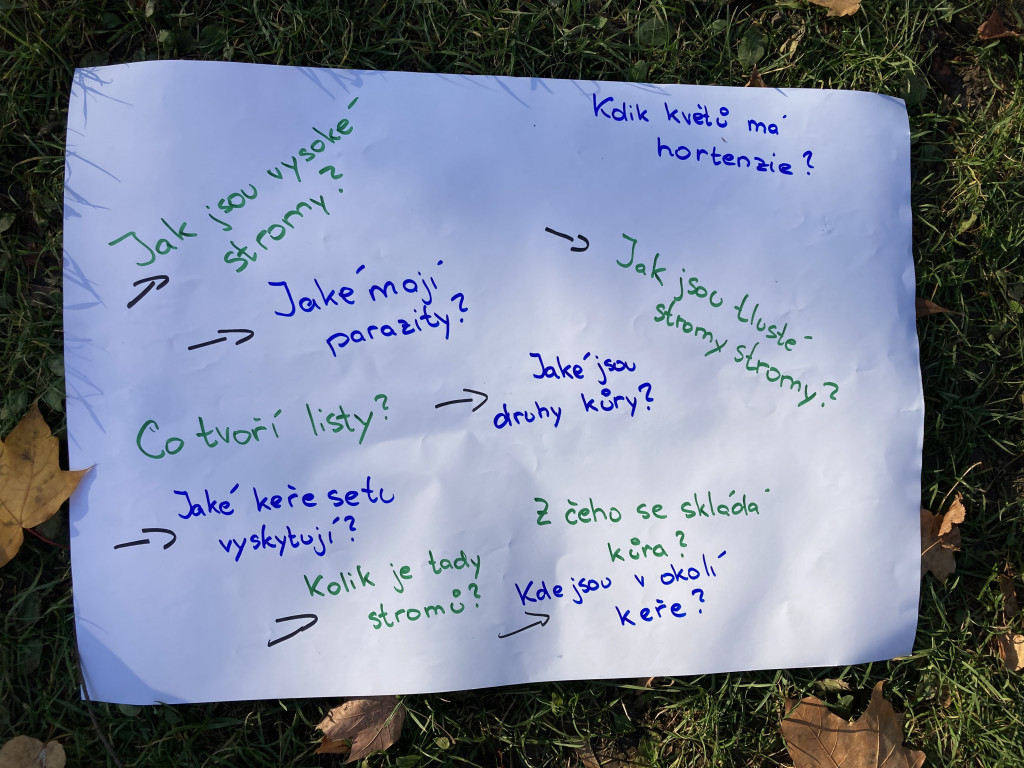 Kdik květů má
hortenzie?
Jak jsou vysoké
stromy?
Jak jsou tlusté
stromy stromy?
Jaké mají
parazity?
Jaké jsou
druhy kůry?
Co tvoří listy?
Jaké keře se tu
vyskytují?
Z čeho se skládá
kůra?
Kolik je tady
stromů?
Kde jsou v okolí
keře?